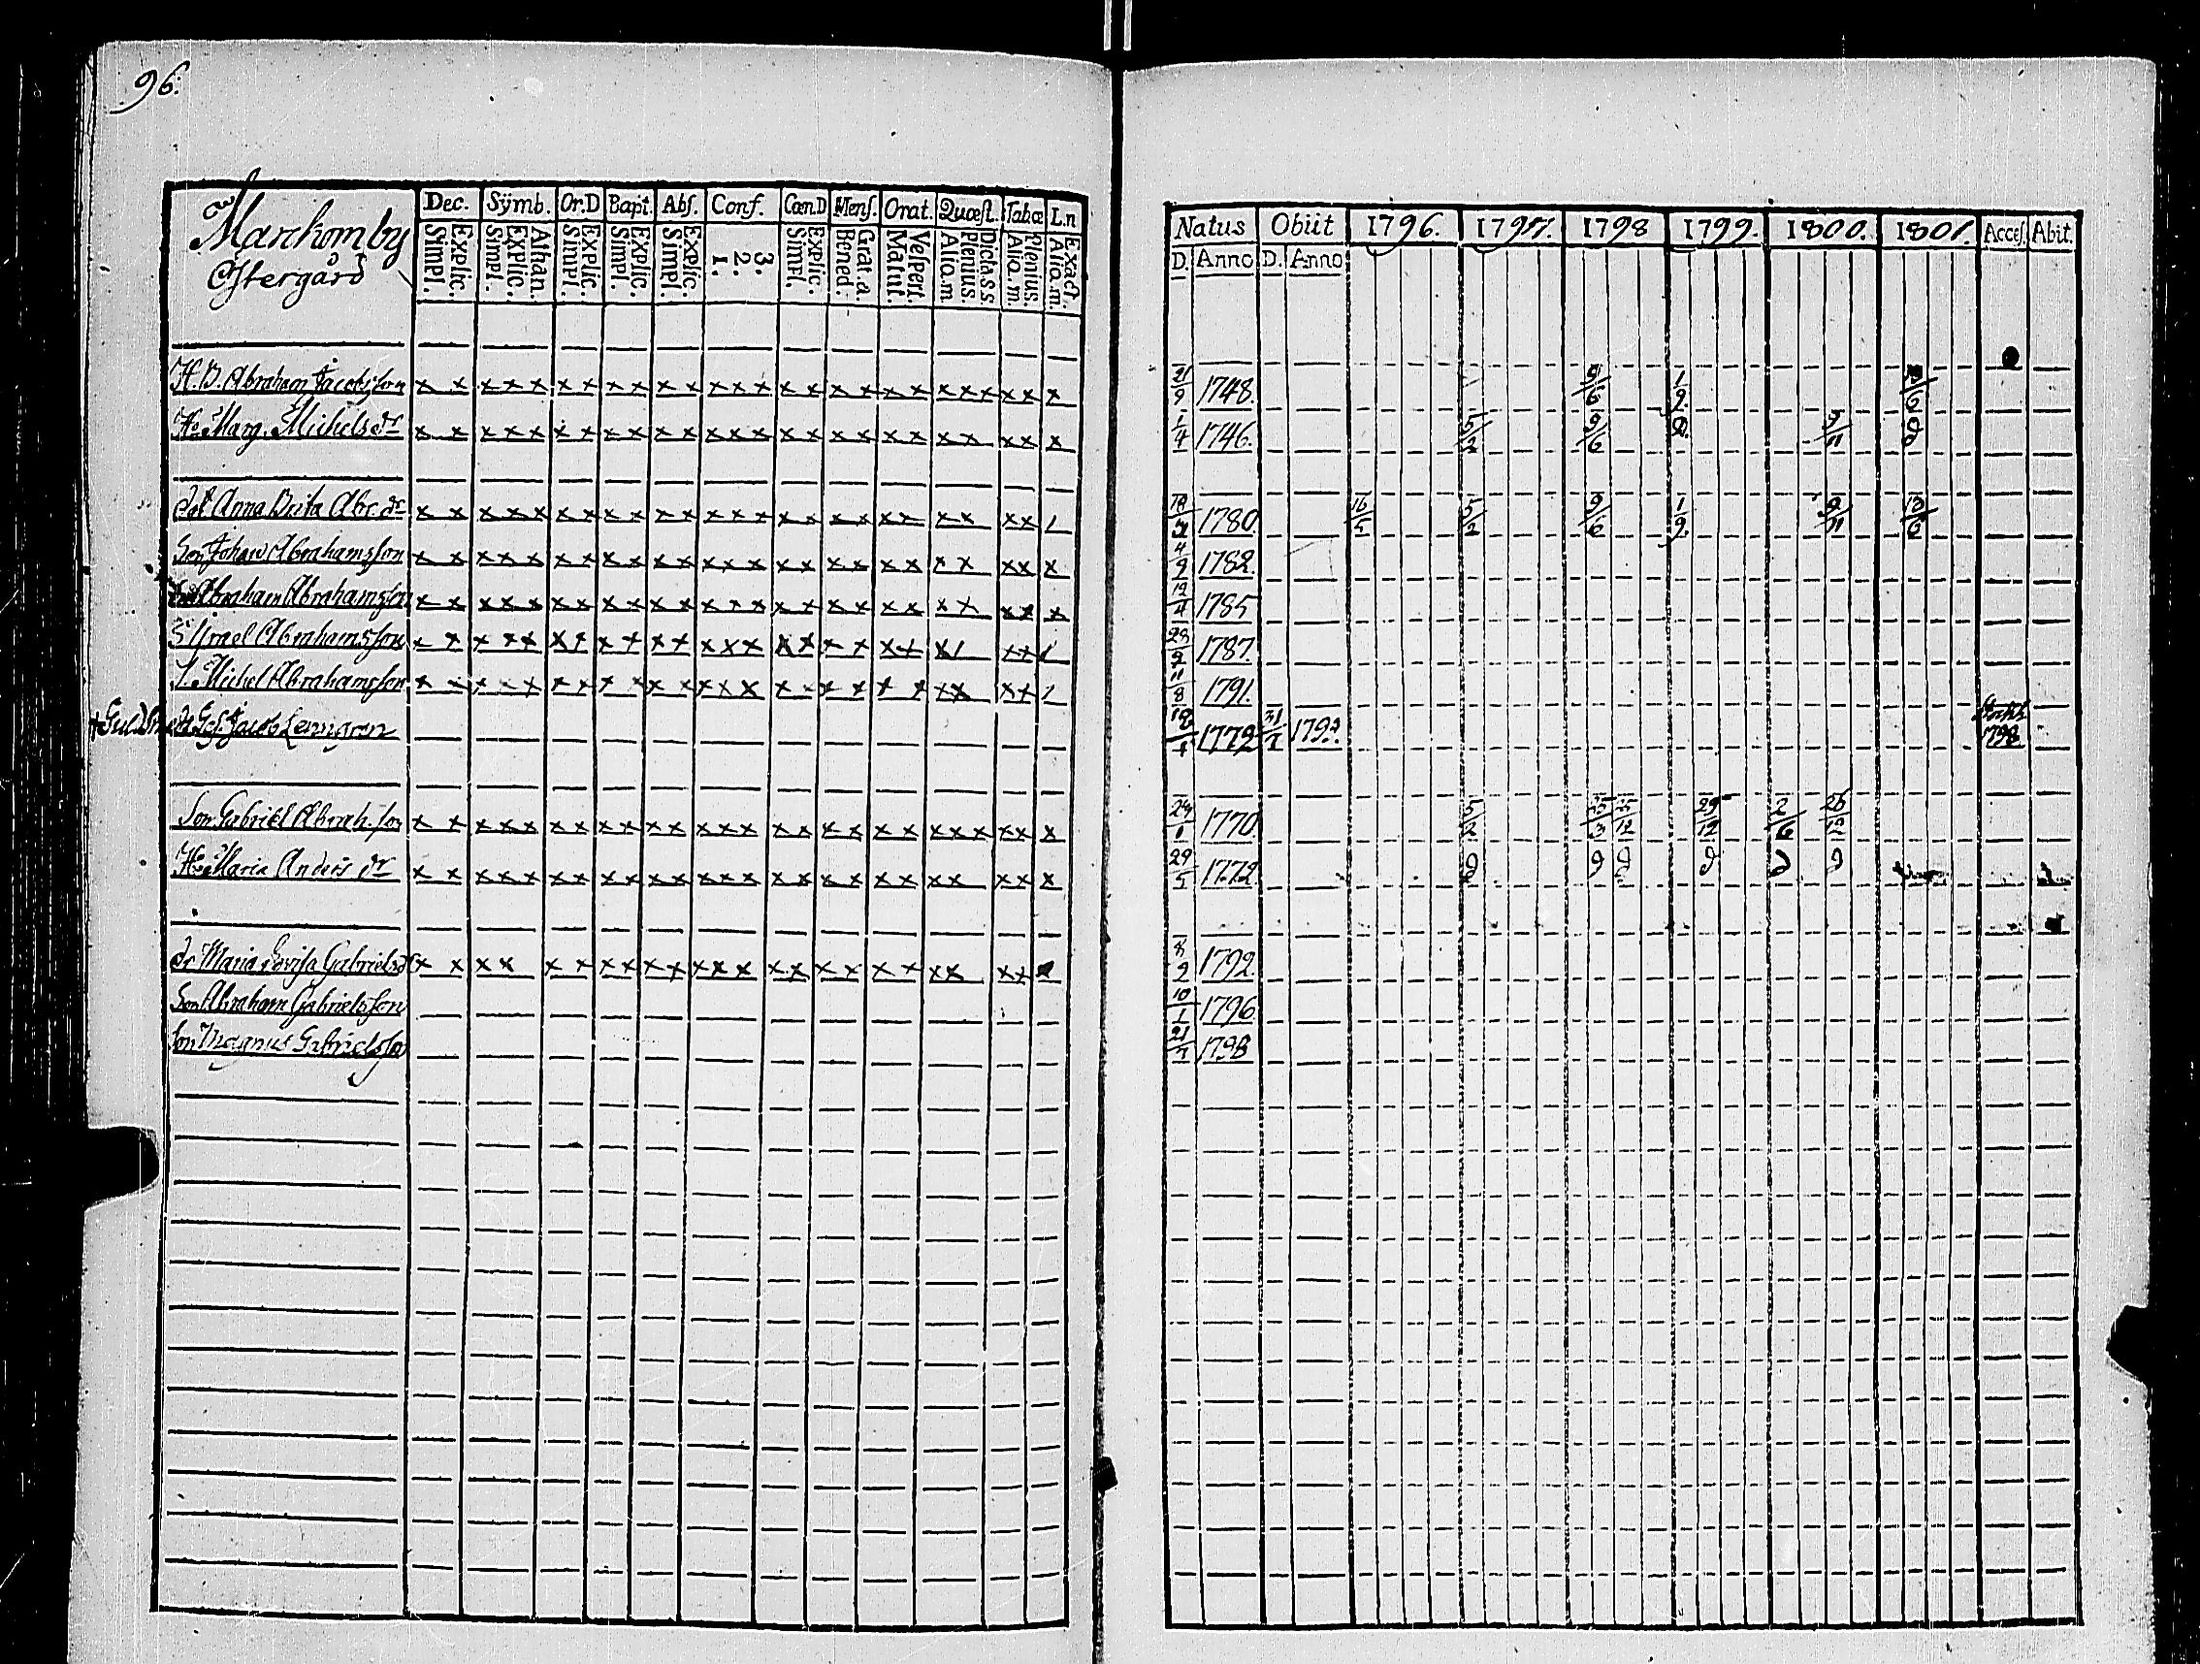 96.
Markomby
Östergård
Dec. Sÿmb. Or.D Bapt. Abſ. Conf. Cœn.D Menſ. Orat. Quæſt. Tabœ L.n
Explic. Simpl. Athan. Explic. Simpl. Explic. Simpl. Explic. Simpl. Explic. Simpl. 3. 2. 1. Explic. Simpl. Grat.a. Bened. Veſpert. Matut. Dicta.s.s. Plenius. Aliq.m Plenius. Aliq.m. Exact. Aliq.m.
Natus Obiit 1796. 1797. 1798 1799. 1800. 1801. Acceſ. Abit.
D. Anno D. Anno
H.B. Abraham Jacobsſon x x x x x x x x x x x x x x x x x x x x x x x x x x x 21/9 1748. 9/6 1/9
Hu Marg. Michelsdr x x x x x x x x x x x x x x x x x x x x x x x x x x 1/4 1746. 5/2 9/6 9 9/11 9
dot Anna Brita Abr.dr x x x x x x x x x x x x x x x x x x x x x x x x x 1 1780 16/5 5/2 9/6 1/9 9/11
Son Johan Abrahamsſon x x x x x x x x x x x x x x x x x x x x x x x x x x 4/9 1782.
Abraham Abrahamsſon x x x x x x x x x x x x x x x x x x x x x x x x x x 12/4 1785
S Israel Abrahamsſon x x x x x x x x x x x x x x x x x x x x x x x 1 x x 1 28/9 1787.
S Michel Abrahamsſon x x x x x x x x x x x x x x x x x x x x x x x x x 1 11/8 1791.
Jacob Lenngren 1772 1792. 1798
Son Gabriel Abrah.ſon x x x x x x x x x x x x x x x x x x x x x x x x x x x 24/1 1770 5/2 25/3 25/12 29/12 2/6 26/12
Hu Maria Anders dr x x x x x x x x x x x x x x x x x x x x x x x x x x 29/5 1772 9 9 9 9 9 9
dr Maria Lovisa Gabrielsd x x x x x x x x x x x x x x x x x x x x x x x x 8/2 1792.
Son Abraham Gabrielsſon 10/1 1796
Son Magnus Gabrielsſon 21/7 1798